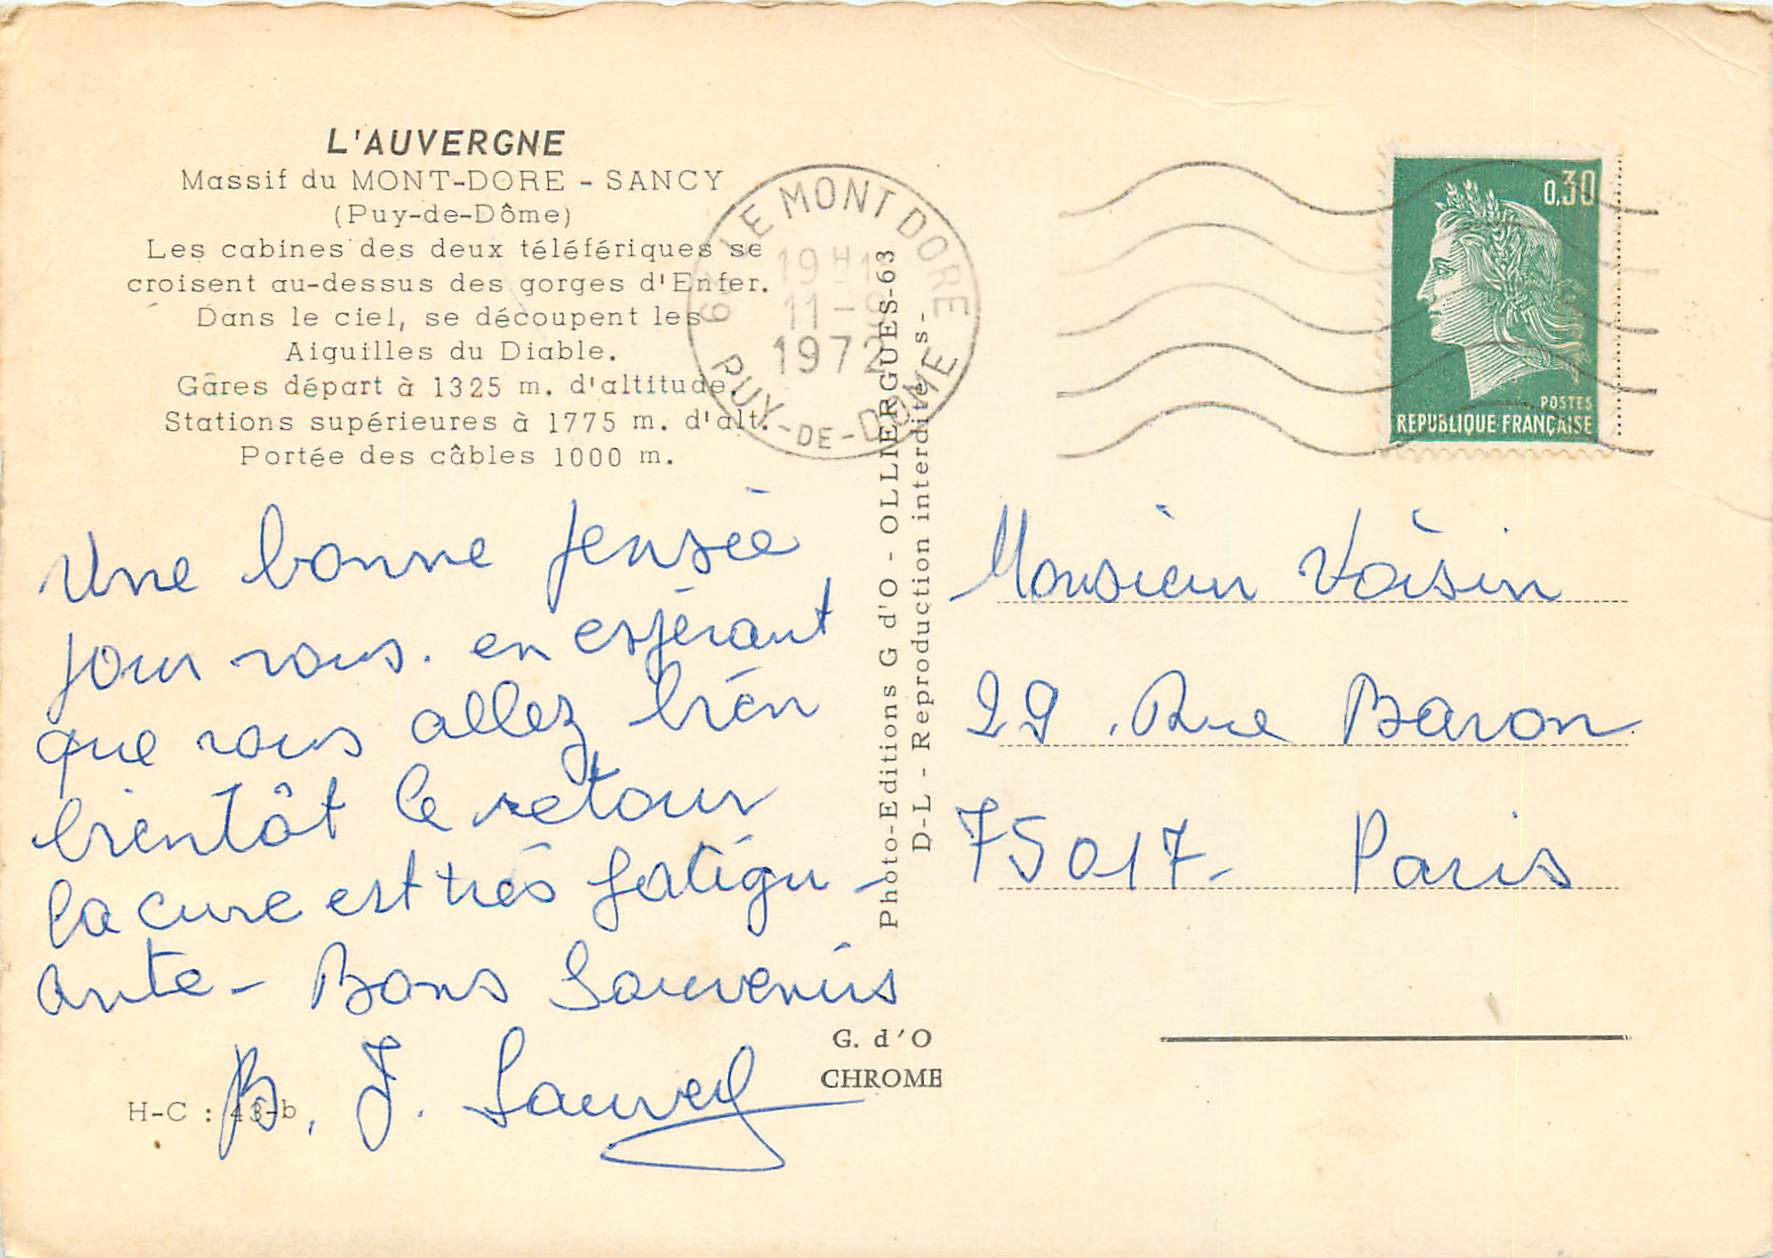 L'AUVERGNE
Massif du MONT-DORE - SANCY
(Puy-de-Dôme)
Les cabines des deux téléfériques se
croisent au-dessus des gorges d'Enfer.
Dans le ciel, se découpent les
Aiguilles du Diable.
Gares départ à 1325 m. d'altitude.
Stations supérieures à 1775 m. d'alt.
Portée des câbles 1000 m.
LE MONT DORE
19H1
11-9
1972
PUY-DE-DOME
0,30
POSTES
REPUBLIQUE FRANÇAISE
Une bonne pensée
pour vous. en espérant
que vous allez bien
bientôt le retour
la cure est très fatigu-
ante - Bons Souvenirs
B. J.
Photo-Editions G d'O - OLLIERGUES-63
D-L - Reproduction interdite s-
Monsieur Voisin
29. Rue Baron
75017- Paris
G. d'O
CHROME
H-C : 43-b